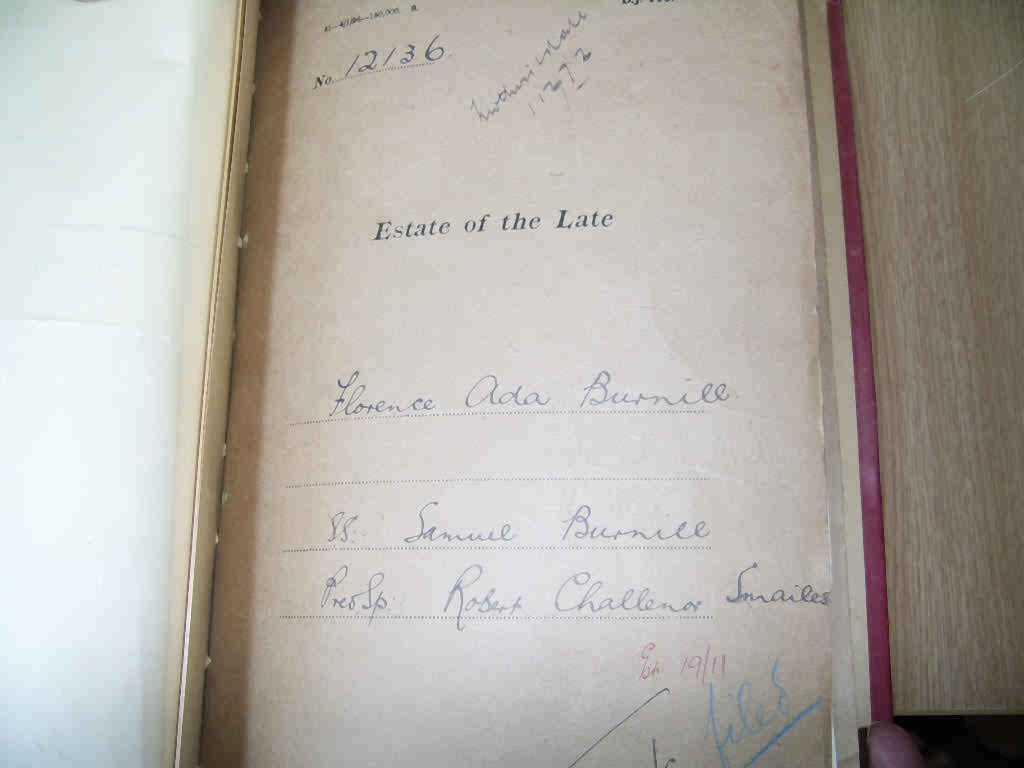 No. 12136
Estate of the Late
Florence Ada Burnill
SS. Samuel Burnill
Pred. Sp. Robert Challenor Smailes
19/11
filed